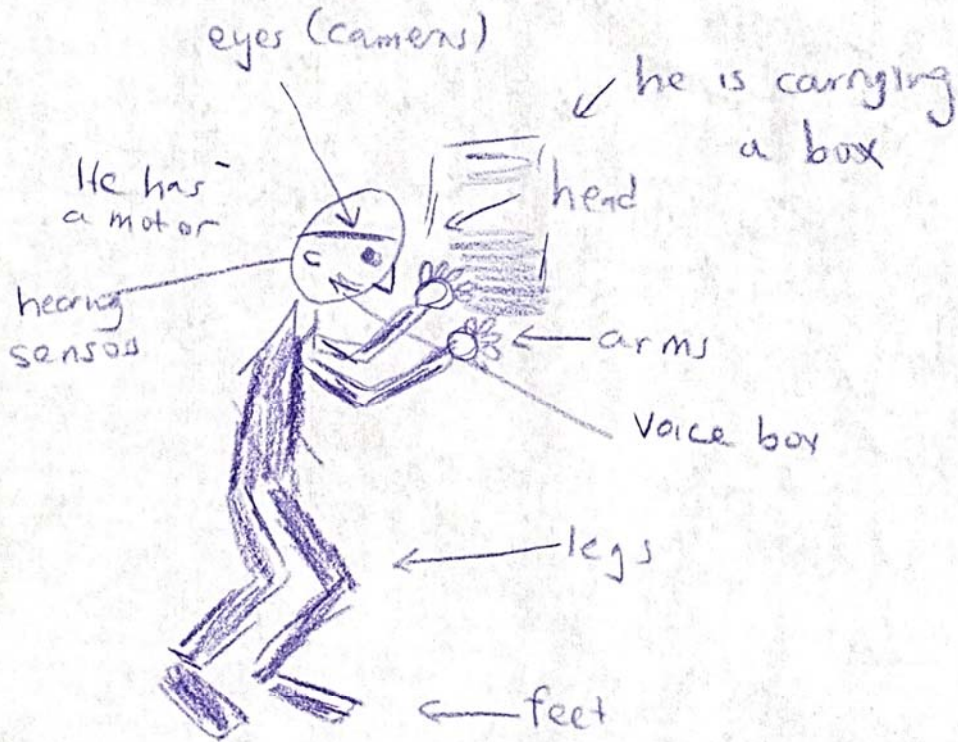 eyes (camers)
he is carnging
a box
He has
a motor
head
hearing
sensos
arms
Voice box
legs
feet